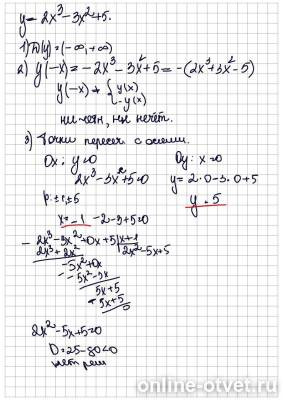 y = 2x³ - 3x² + 5.
1) D(y) = (-∞, +∞)
2) y(-x) = -2x³ - 3x² + 5 = -(2x³ + 3x² - 5)
y(-x) ≠ { y(x)
-y(x)
ни чёт, ни нечёт.
3) Точки пересеч с осями.
Ox: y=0
2x³ - 3x² + 5 = 0
p: ±1, ±5
x = -1 -2 - 3 + 5 = 0
Oy: x = 0
y = 2·0 - 3·0 + 5
y = 5
2x³ - 3x² + 0x + 5 | x+1
2x³ + 2x² 2x² - 5x + 5
-5x² + 0x
-5x² - 5x
5x + 5
5x + 5
0
2x² - 5x + 5 = 0
D = 25 - 80 < 0
нет реш
online-otvet.ru